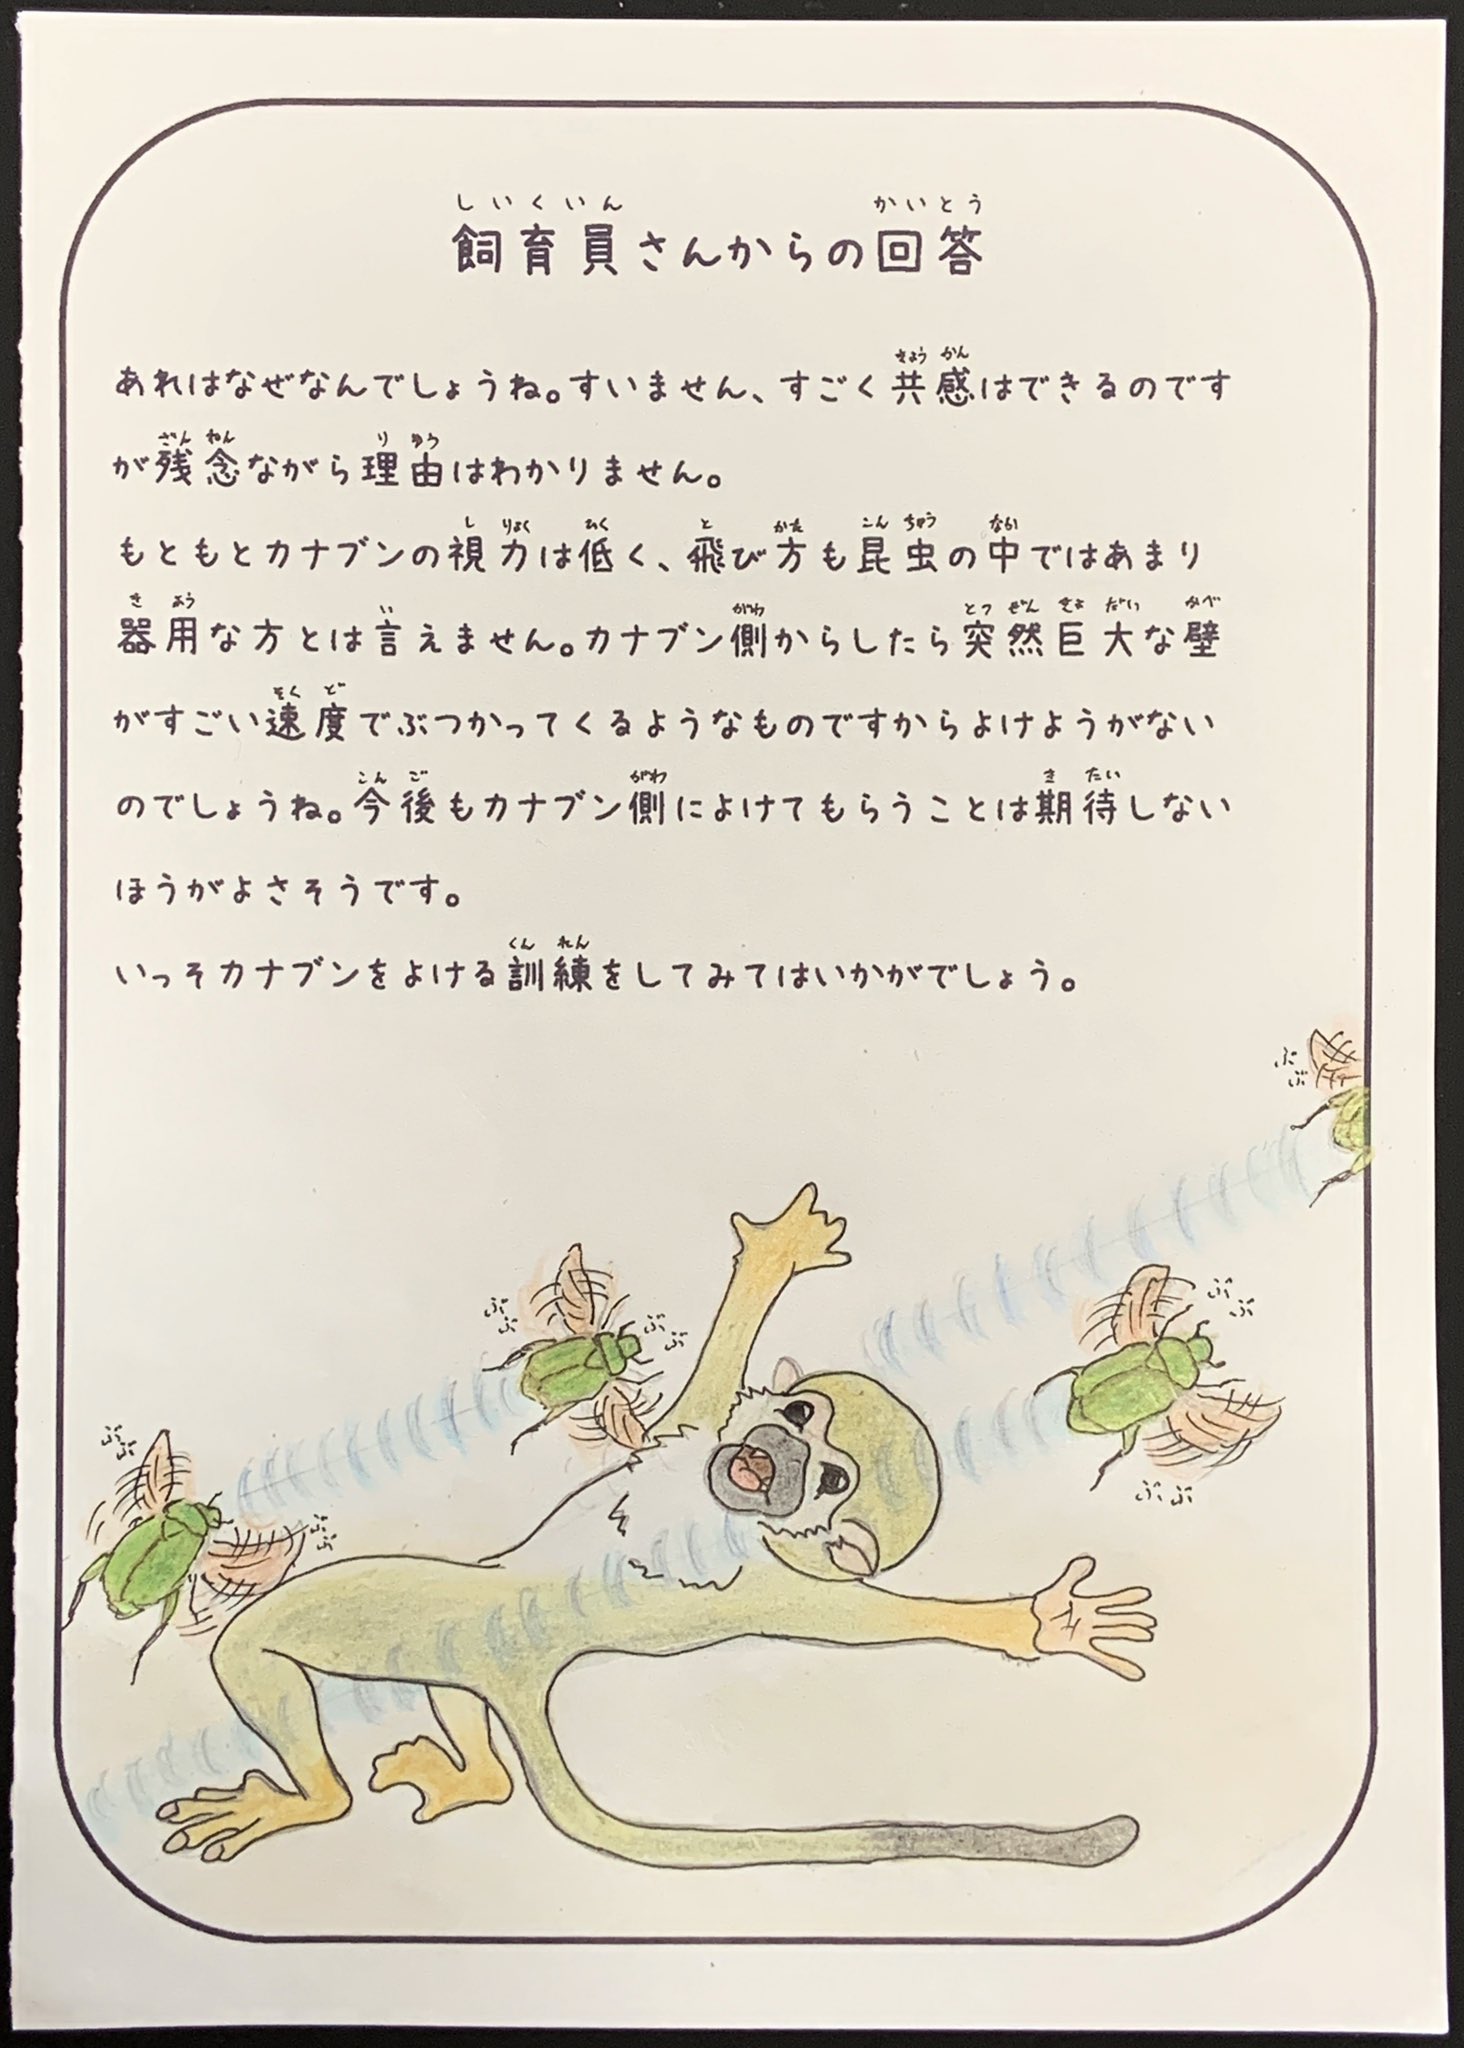 飼育員さんからの回答
あれはなぜなんでしょうね。すいません、すごく共感はできるのです
が残念ながら理由はわかりません。
もともとカナブンの視力は低く、飛び方も昆虫の中ではあまり
器用な方とは言えません。カナブン側からしたら突然巨大な壁
がすごい速度でぶつかってくるようなものですからよけようがない
のでしょうね。今後もカナブン側によけてもらうことは期待しない
ほうがよさそうです。
いっそカナブンをよける訓練をしてみてはいかがでしょう。
ぶ
ぶ
ぶぶ
ぶぶ
ぶぶ
ぶぶ
ぶぶ
ぶぶ
ぶぶ
ぶぶ
ぶぶ
ぶぶ